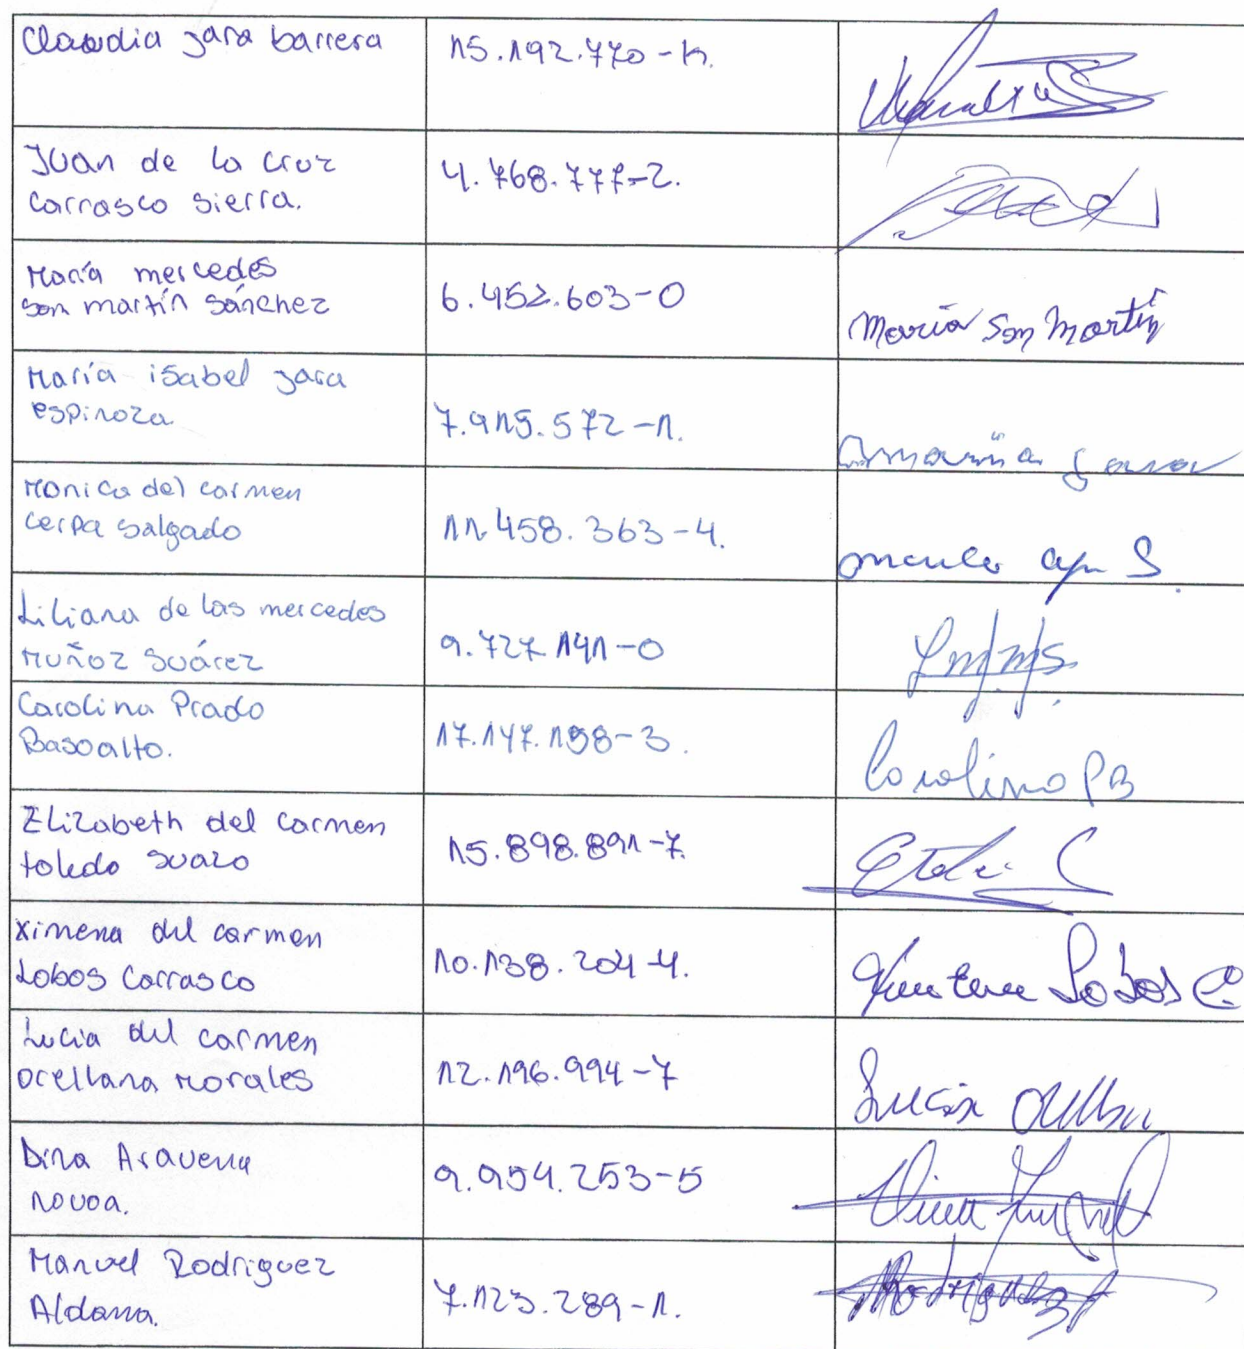 Claudia jara barrera
15.192.770-k.
Juan de la cruz
carrasco sierra.
4.768.777-2.
María mercedes
san martín sánchez
6.452.603-0
María San Martín
María isabel jara
espinoza
7.915.572-1.
Monica del carmen
cerpa salgado
11.458.363-4.
Liliana de las mercedes
Muñoz suárez
9.727.141-0
Carolina Prado
Basoalto.
17.147.198-3.
Carolina PB
Elizabeth del carmen
toledo suazo
15.898.891-7.
ximena del carmen
Lobos Carrasco
10.138.204-4.
Lobos C.
Lucia del carmen
orellana morales
12.196.994-7
Lucia
Dina Aravena
novoa.
9.954.253-5
Manuel Rodriguez
Aldana.
7.123.289-1.
Rodriguez